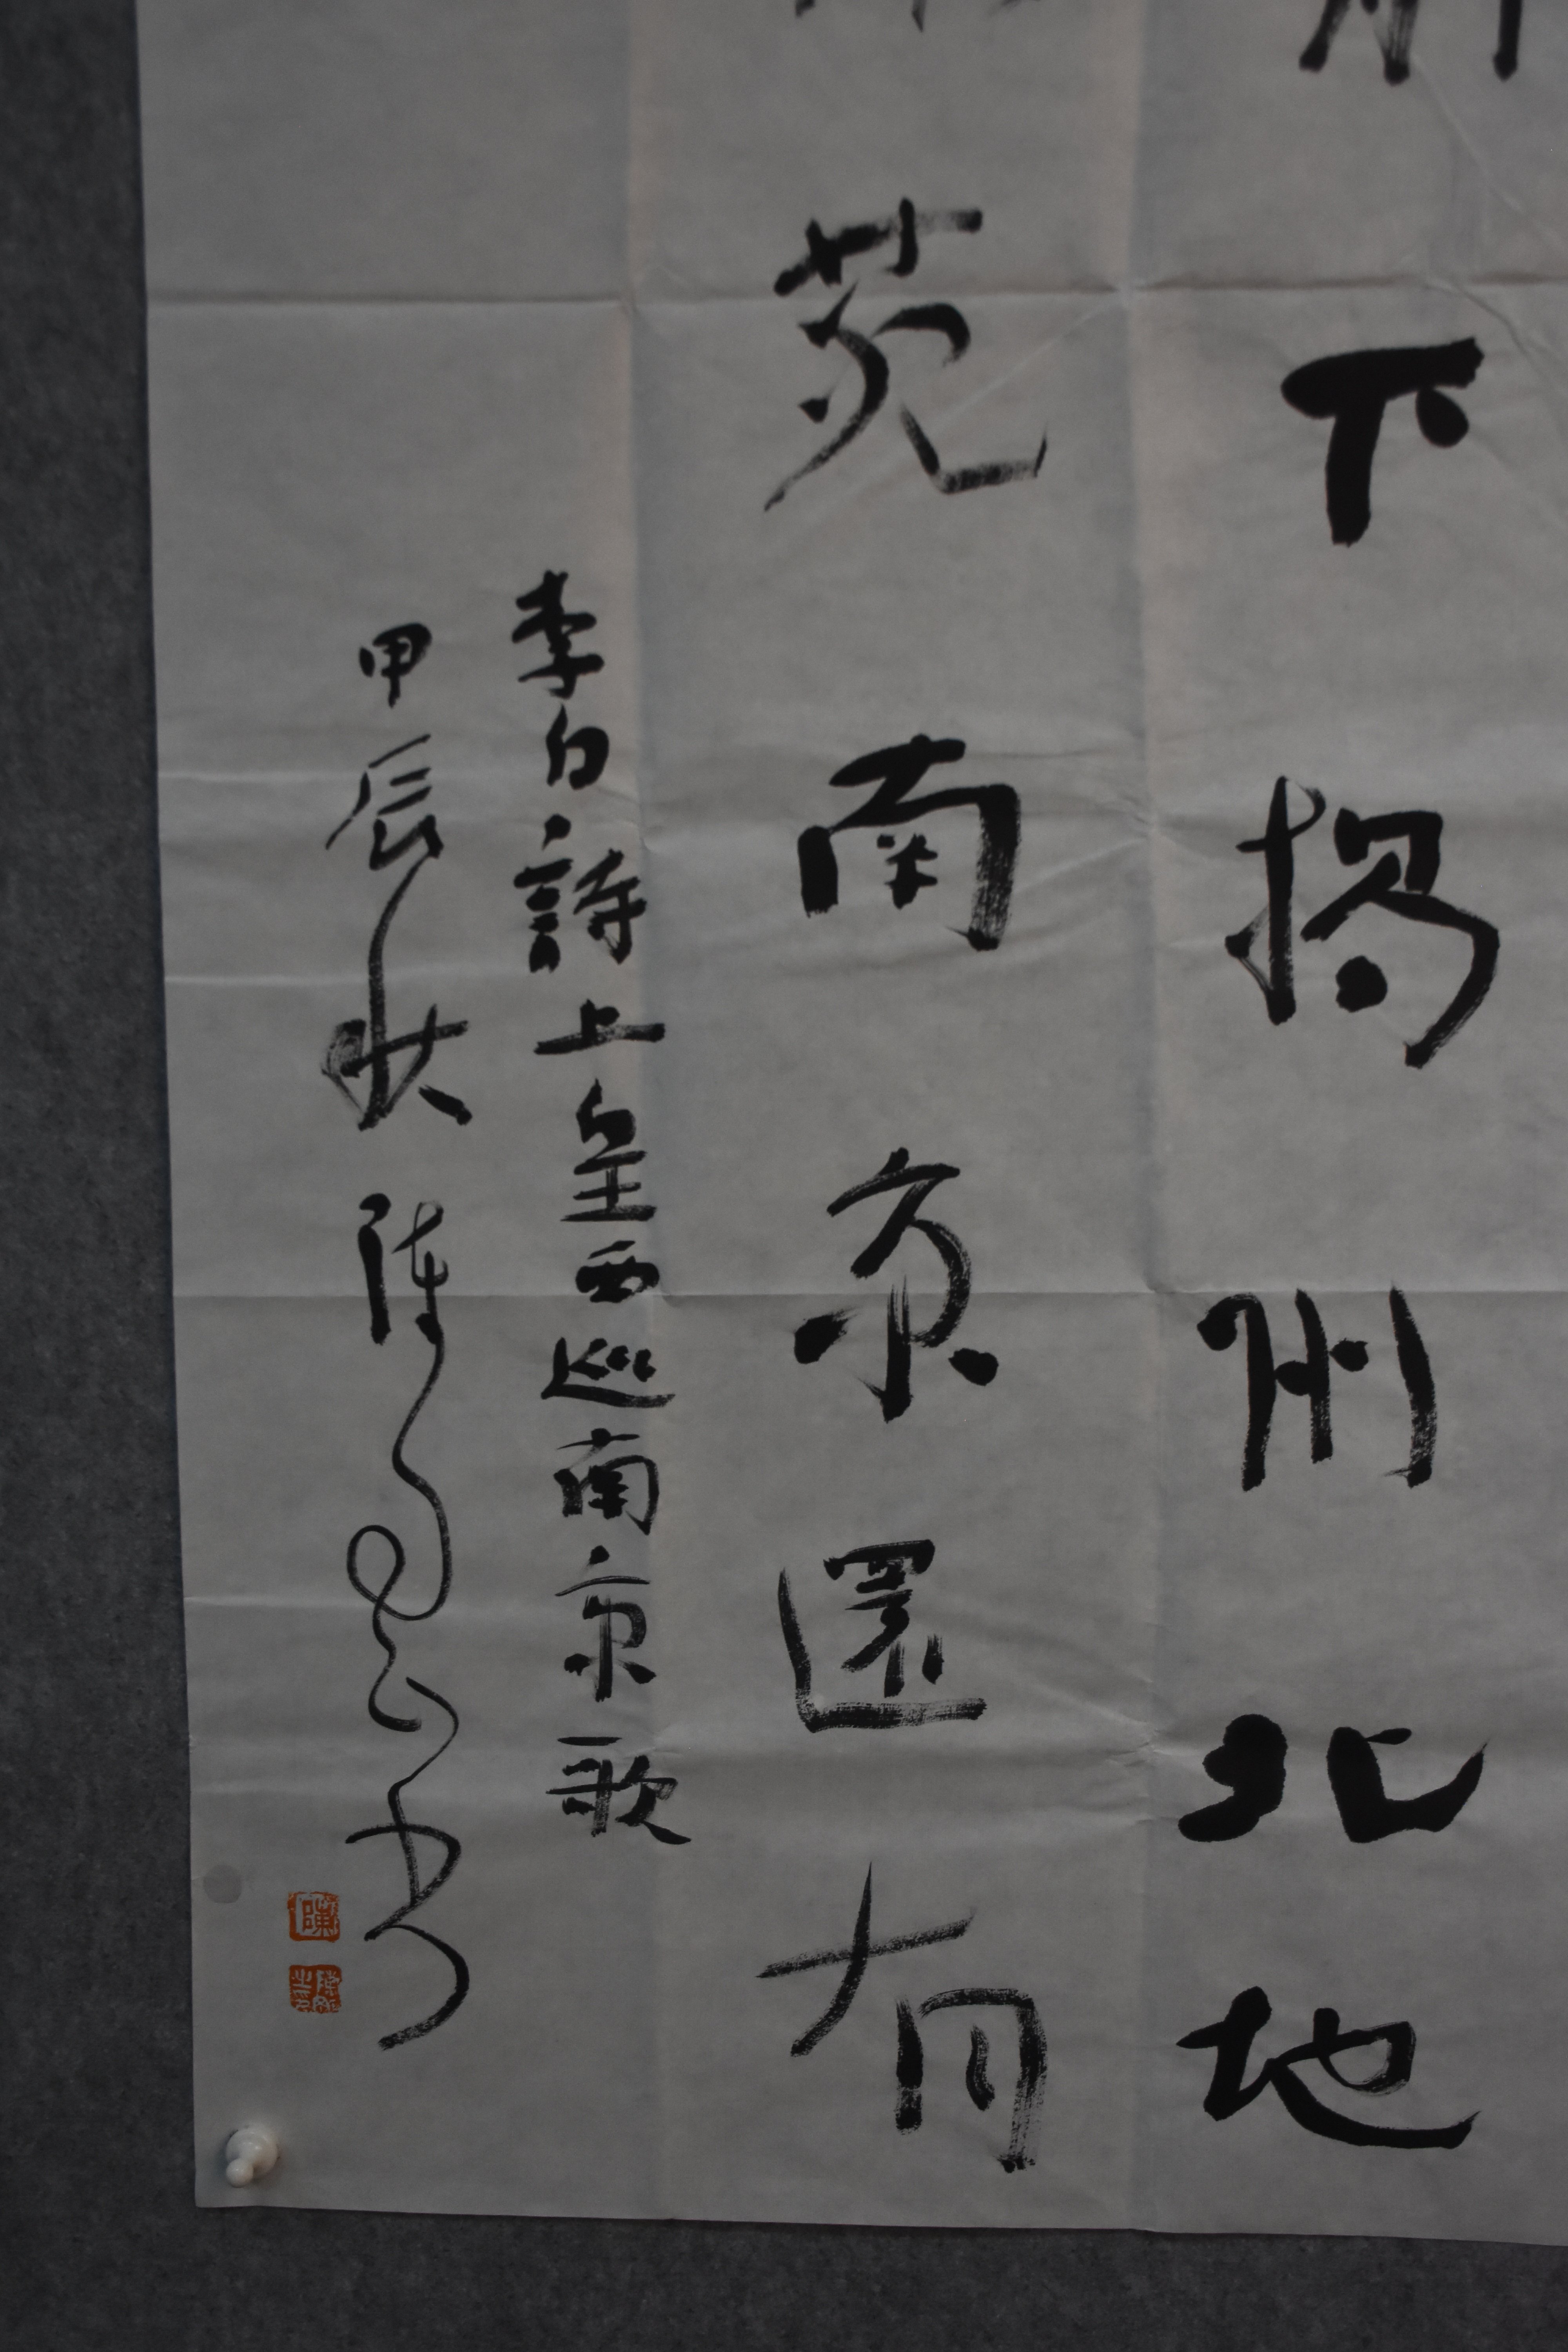 下揚州北地
苑南京還有
李白詩上皇西巡南京歌
甲辰秋陳
書
陳